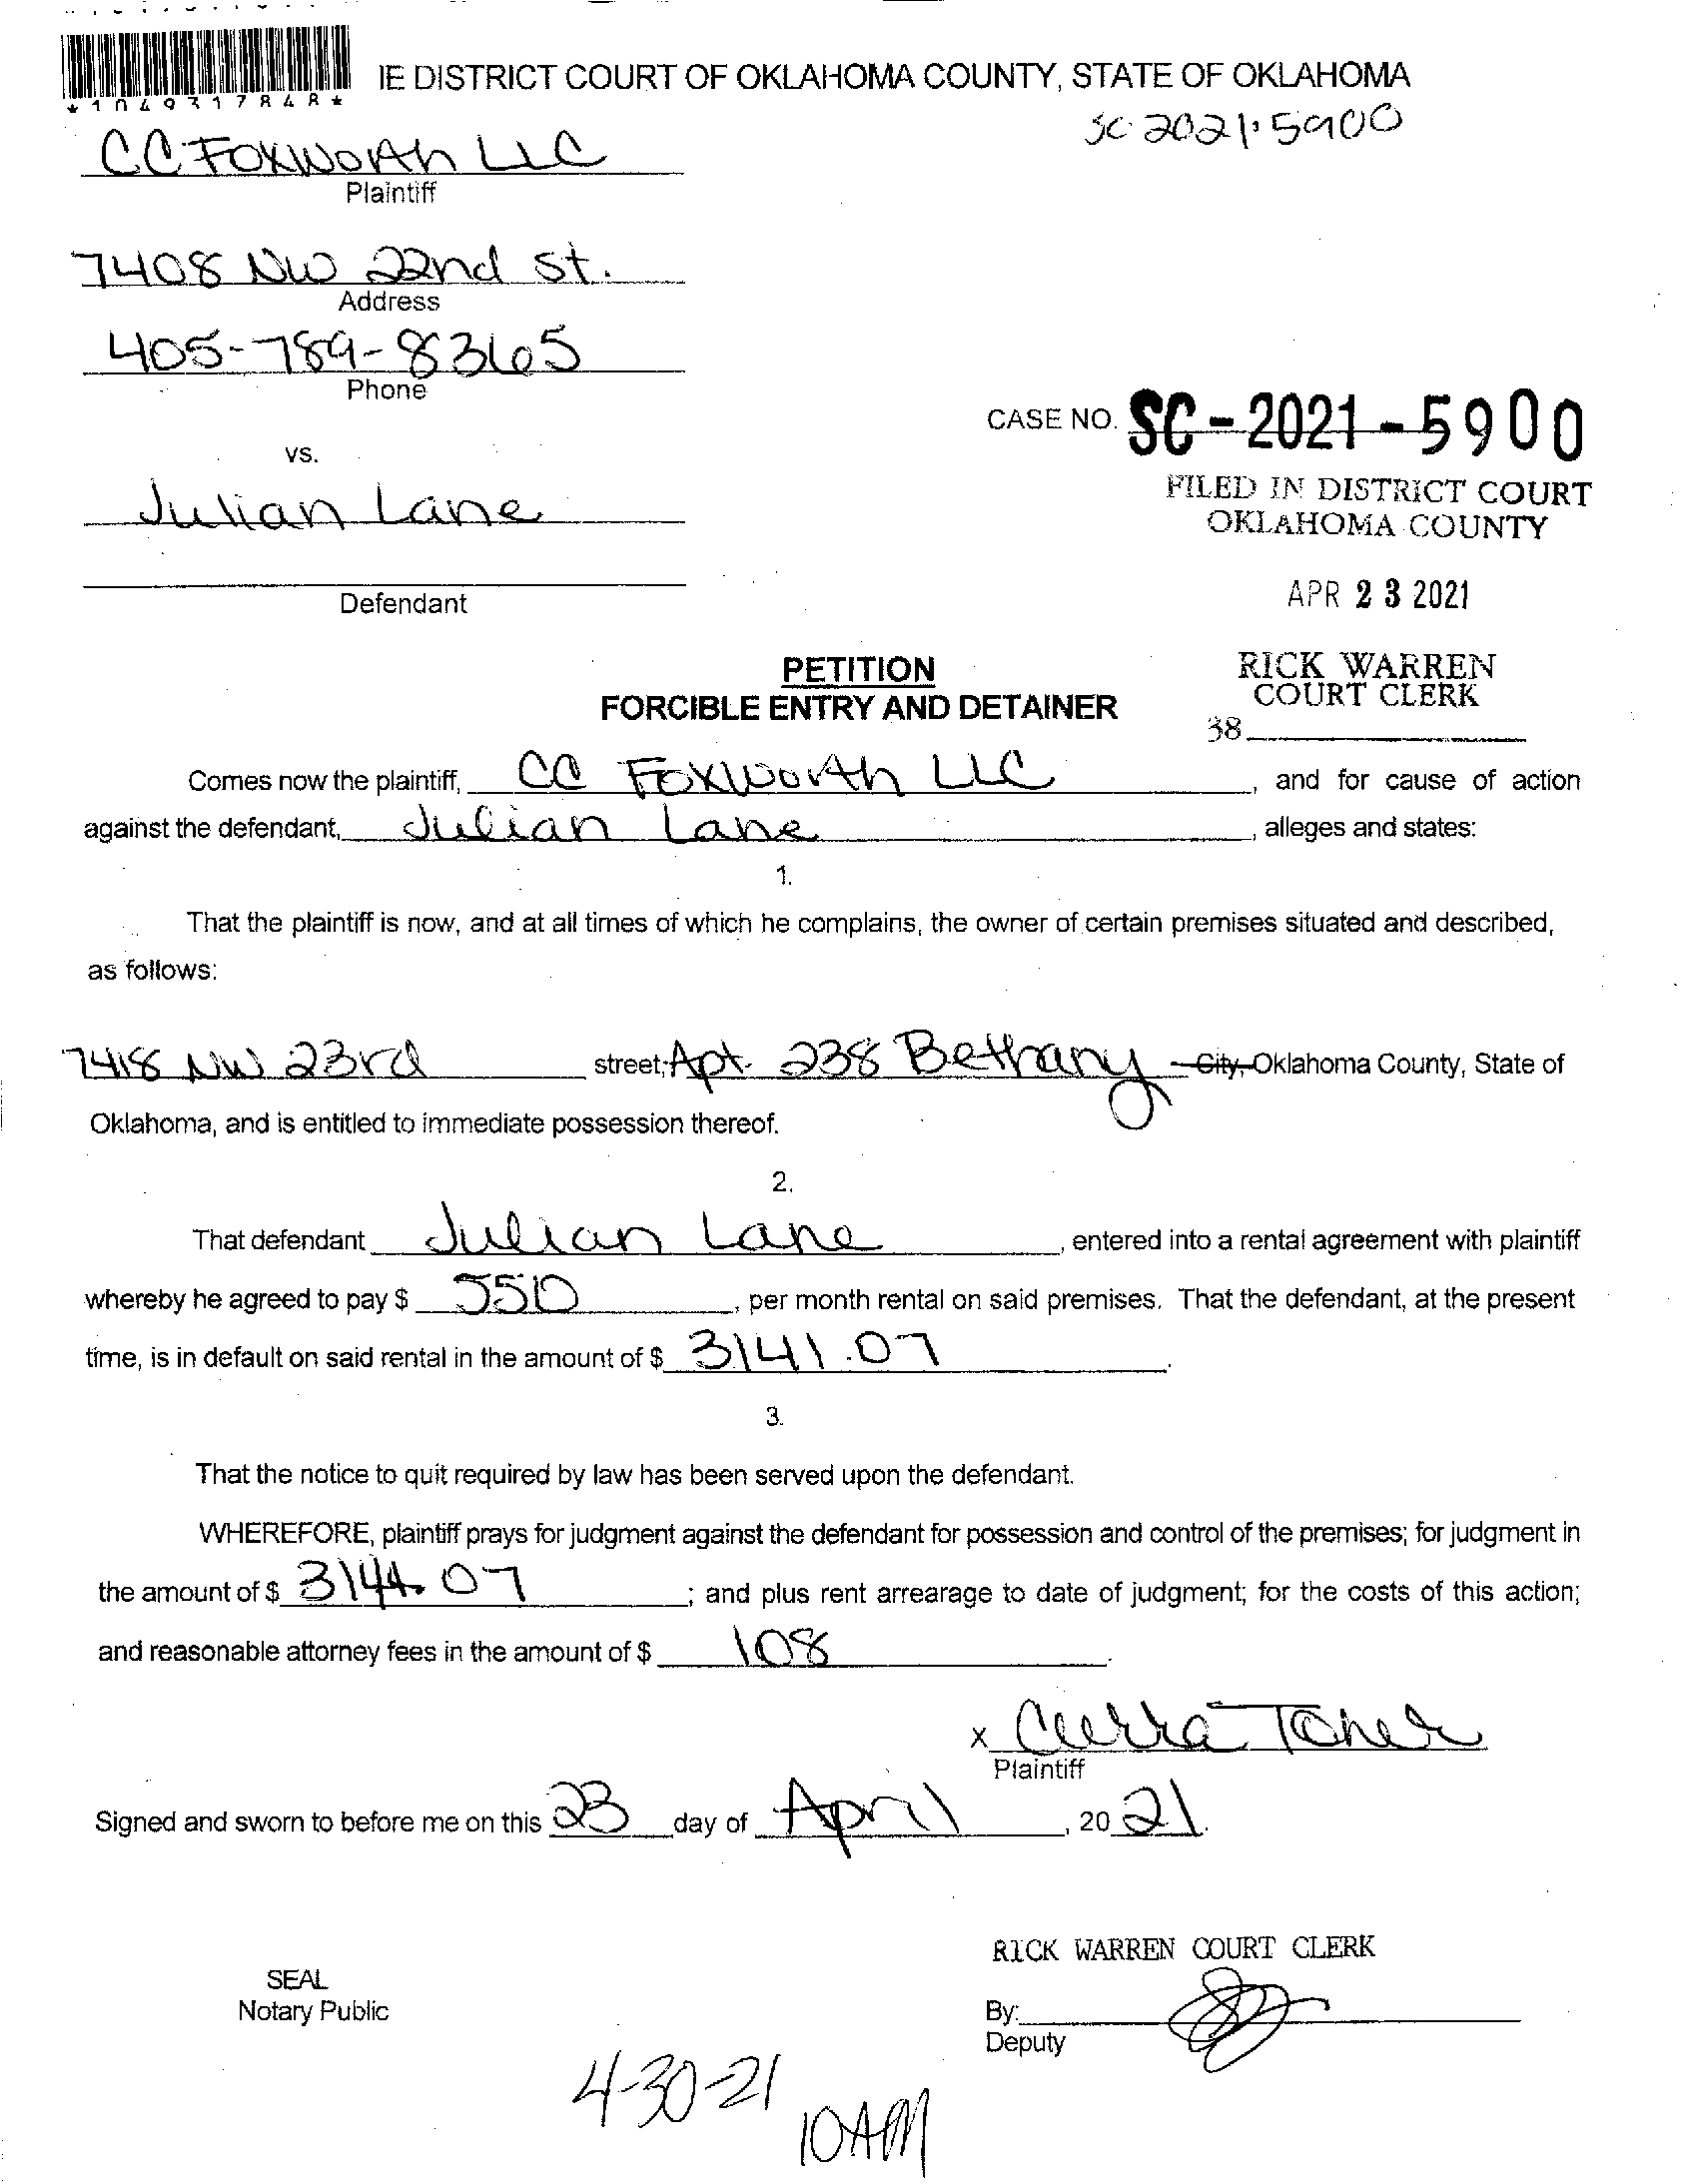 *1049317848*
IE DISTRICT COURT OF OKLAHOMA COUNTY, STATE OF OKLAHOMA
SC-2021-5900
CC Foxworth LLC
Plaintiff
7408 NW 22nd St.
Address
405-789-8365
Phone
CASE NO. SC-2021-5900
vs.
FILED IN DISTRICT COURT
OKLAHOMA COUNTY
Julian Lane
APR 23 2021
Defendant
PETITION
FORCIBLE ENTRY AND DETAINER
RICK WARREN
COURT CLERK
38
Comes now the plaintiff, CC Foxworth LLC, and for cause of action
against the defendant, Julian Lane, alleges and states:
1.
That the plaintiff is now, and at all times of which he complains, the owner of certain premises situated and described,
as follows:
7418 NW 23rd street; Apt. 238 Bethany City, Oklahoma County, State of
Oklahoma, and is entitled to immediate possession thereof.
2.
That defendant Julian Lane, entered into a rental agreement with plaintiff
whereby he agreed to pay $ 550, per month rental on said premises. That the defendant, at the present
time, is in default on said rental in the amount of $ 3141.07.
3.
That the notice to quit required by law has been served upon the defendant.
WHEREFORE, plaintiff prays for judgment against the defendant for possession and control of the premises; for judgment in
the amount of $ 3141.07; and plus rent arrearage to date of judgment; for the costs of this action;
and reasonable attorney fees in the amount of $ 108.
x
Plaintiff
Signed and sworn to before me on this 23 day of April, 2021.
RICK WARREN COURT CLERK
SEAL
Notary Public
By:
Deputy
4-30-21
10AM